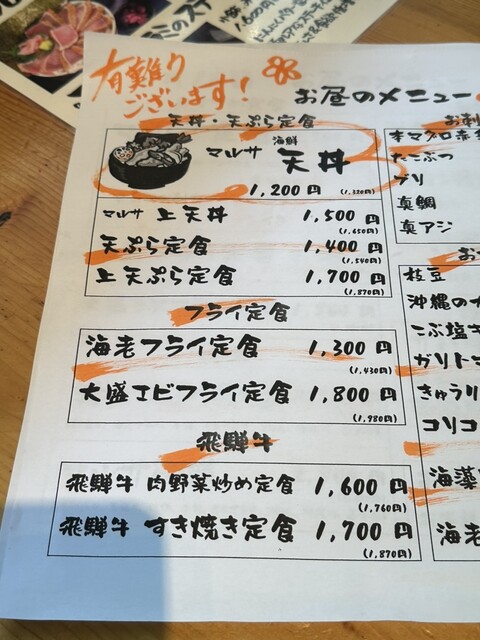 有難り
ございます!
お昼のメニュー
天丼・天ぷら定食
マルサ 海鮮 天丼
1,200円
(1,320円)
マルサ 上天丼 1,500円
(1,650円)
天ぷら定食 1,400円
(1,540円)
上 天ぷら定食 1,700円
(1,870円)
フライ定食
海老フライ定食 1,300円
(1,430円)
大盛エビフライ定食 1,800円
(1,980円)
飛騨牛
飛騨牛 肉野菜炒め定食 1,600円
(1,760円)
飛騨牛 すき焼き定食 1,700円
(1,870円)
お刺
本マグロ赤
たこぶつ
ブリ
真鯛
真アジ
お
枝豆
沖縄の
こぶ塩キ
ガリト
きゅうり
コリコ
海藻
海老